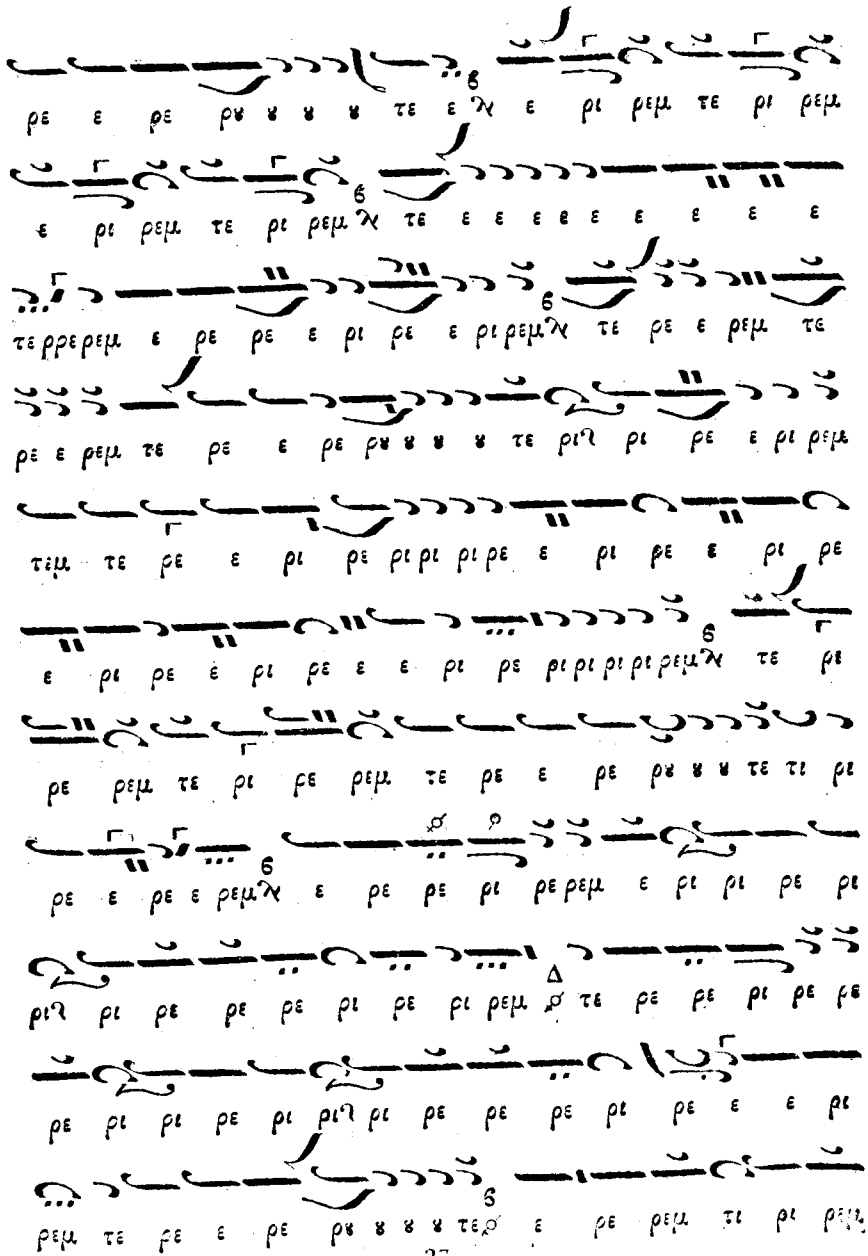 ρε ε ρε ρȣ ȣ ȣ ȣ τε ε ε ρι ρεμ τε ρι ρεμ
ε ρι ρεμ τε ρι ρεμ τε ε ε ε ε ε ε ε ε ε
τε ρρε ρεμ ε ρε ρε ε ρι ρε ε ρι ρεμ τε ρε ε ρεμ τε
ρε ε ρεμ τε ρε ε ρε ρȣ ȣ ȣ ȣ τε ρι ρε ε ρι ρεμ
τεμ τε ρε ε ρι ρε ρι ρι ρι ρε ε ρι ρε ε ρι ρε
ε ρι ρε ε ρι ρε ε ε ρι ρε ρι ρι ρι ρι ρεμ τε ρε
ρε ρεμ τε ρι ρε ρεμ τε ρε ε ρε ρȣ ȣ ȣ τε τι ρι
ρε ε ρε ε ρεμ ε ρε ρε ρι ρε ρεμ ε ρι ρι ρε ρι
ρι ρε ρε ρε ρι ρε ρι ρεμ Δ τε ρε ρε ρι ρε ρε
ρε ρι ρι ρε ρι ρι ρε ρε ρε ρι ρε ε ε ρι
ρεμ τε ρε ε ρε ρȣ ȣ ȣ ȣ τε ε ρε ρεμ τι ρι ρεμ